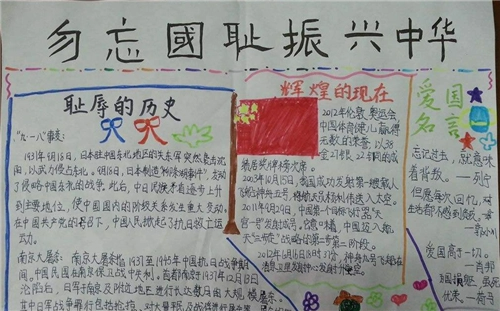 勿忘國耻振兴中华
耻辱的历史
"九·一八"事变:
1931年9月18日,日本驻中国东北地区的关东军突然袭击沈
阳,以武力侵占东北。
侵略中国东北的战争。此后,中日民族矛盾逐步上升
到主要地位,使中国国内的阶级关系发生重大变动。
在中国共产党的号召下,中国人民掀起了抗日救亡运
动。
南京大屠杀:南京大屠杀
中国民国在南京保卫战中失利。首都南京1937年12月13日
沦陷后,日军于南京及附近地区进行长达数月的大规模屠杀。
其中日军战争罪行包括抢掠、
辉煌的现在
2012年伦敦奥运会,
中国体育健儿赢得
无数的荣誉,以38
金27银22铜的成
绩居奖牌榜次席。
2003年10月15日,我国成功发射第一艘载人
飞船神舟五号,将航天员杨利伟送入太空。
2011年9月29日,中国第一个目标飞行器"天
宫一号"发射成功。
天三步走"战略的第二步第二阶段。
2012年6月16日18时37分,神舟九号飞船在
酒泉卫星发射中心发射升空。
爱国
名言
忘记过去,就意味
着背叛。—列宁
但愿每次回忆,对
生活都不感到负疚。—郭小川
爱国高于一切。
—肖邦
国耻